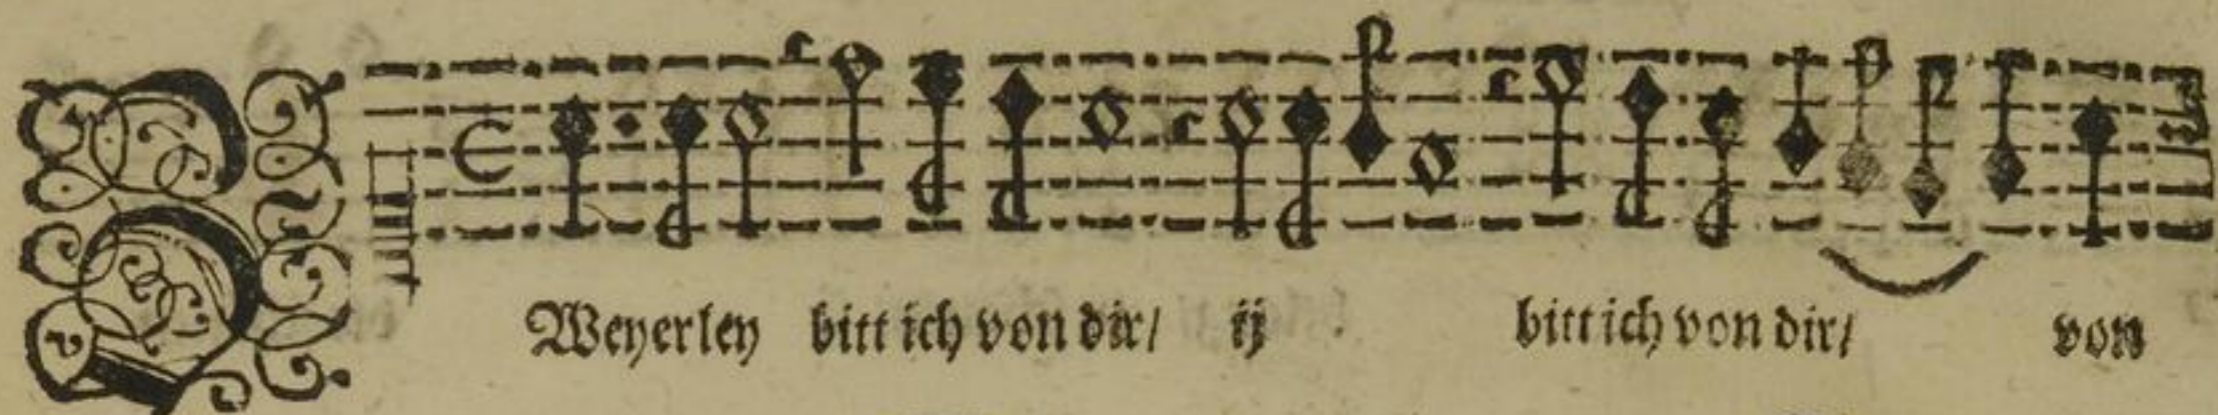 ZWeyerley bitt ich von dir/ ij bitt ich von dir/ von